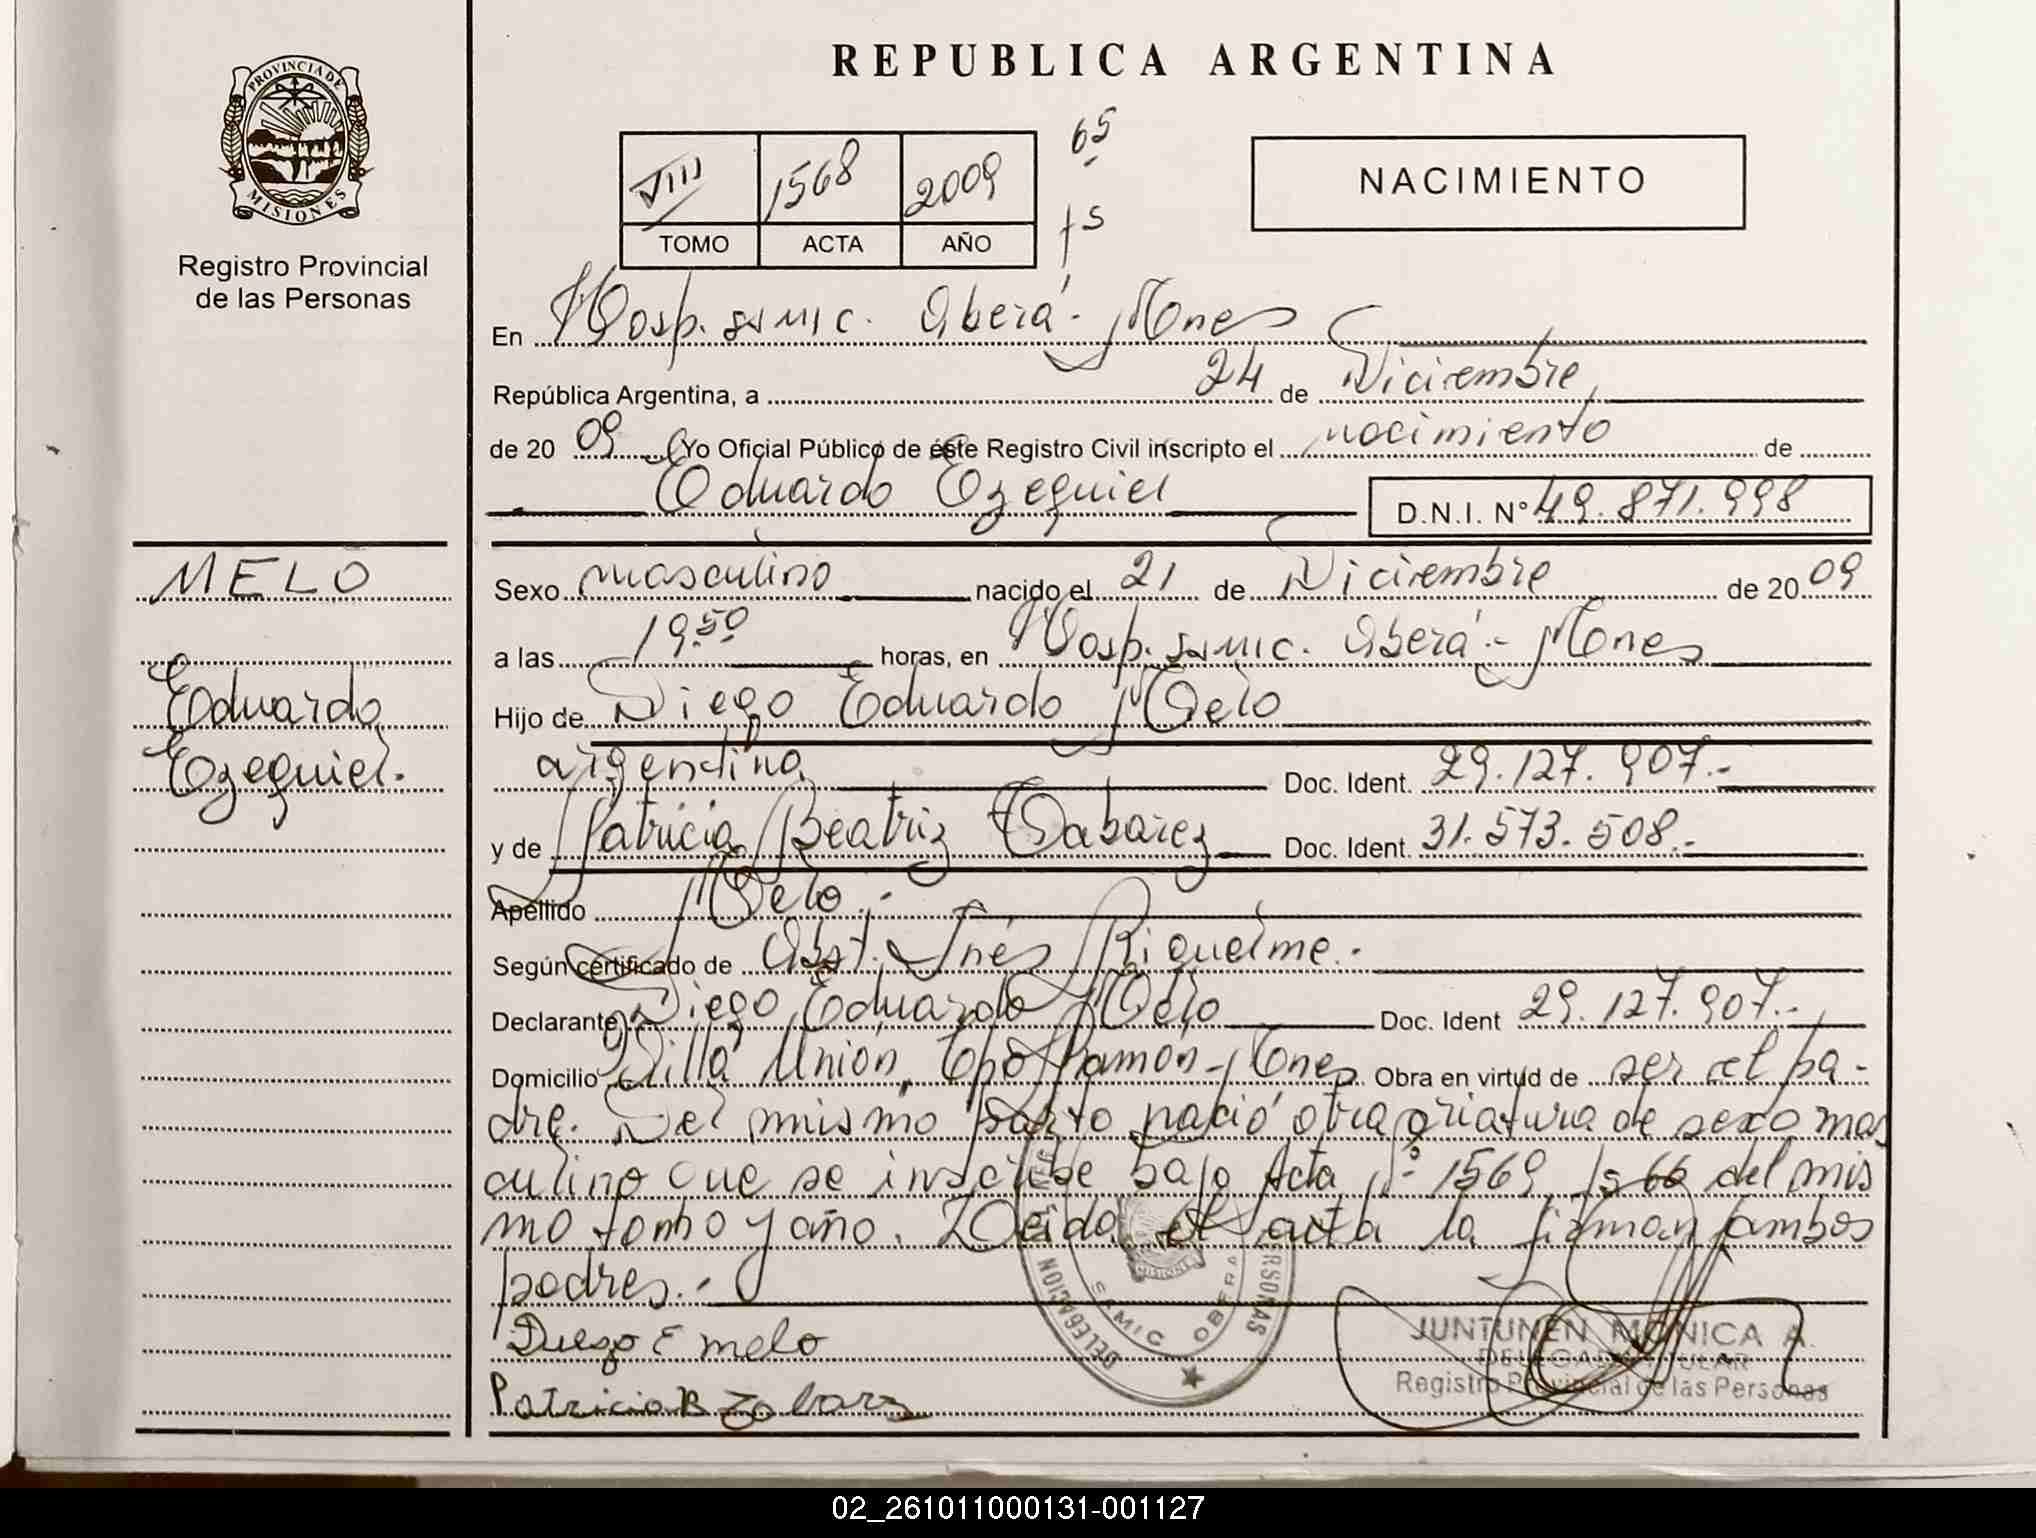 REPUBLICA ARGENTINA
PROVINCIA DE
MISIONES
Registro Provincial
de las Personas
VIII 1568 2009
TOMO ACTA AÑO
65
fs
NACIMIENTO
En Hosp. SAMIC. Oberá - Mnes
República Argentina, a 24 de Diciembre
de 20 09 Yo Oficial Público de éste Registro Civil inscripto el nacimiento de
Eduardo Ezequiel D.N.I. N° 49.871.998
MELO
Eduardo
Ezequiel.
Sexo masculino nacido el 21 de Diciembre de 20 09
a las 19.50 horas, en Hosp. SAMIC. Oberá - Mnes
Hijo de Diego Eduardo Melo
argentino Doc. Ident. 29.127.907.-
y de Patricia Beatriz Tabarez Doc. Ident. 31.573.508.-
Apellido Melo.-
Según certificado de Obst. Inés Riquelme.-
Declarante Diego Eduardo Melo Doc. Ident 29.127.907.-
Domicilio Villa Unión, Cpo Ramón - Mnes Obra en virtud de ser el pa-
dre. Del mismo parto nació otra criatura de sexo mas
culino que se inscribe bajo Acta N° 1569 fs 66 del mis
mo tomo y año. Leida el acta la firman ambos
padres.-
Diego E melo
Patricia B Tabarz
DELEGACION
PERSONAS
SAMIC OBERA
MISIONES
JUNTUNEN MONICA A.
DELEGADA TITULAR
Registro Provincial de las Personas
02_261011000131-001127